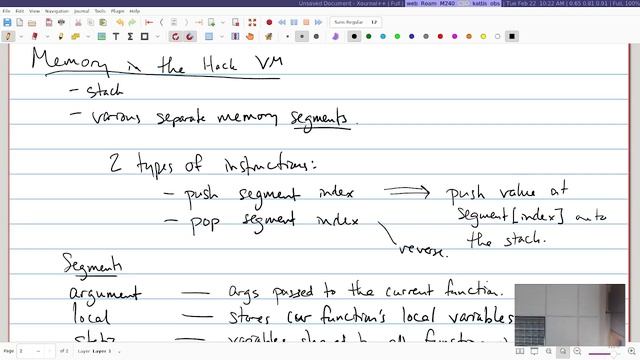 Unsaved Document - Xournal++ | Full | web Roam M240 kattis obs Tue Feb 22 10:22 AM
File Edit View Navigation Journal Tools Plugin Help
Sans Regular 12
Memory in the Hack VM
- stack
- various separate memory segments.
2 types of instructions:
- push segment index ⟹ push value at
segment[index] onto
the stack.
- pop segment index
reverse.
Segments
argument — args passed to the current function.
local — stores curr function's local variables
Page 2 of 2 Layer Layer 1